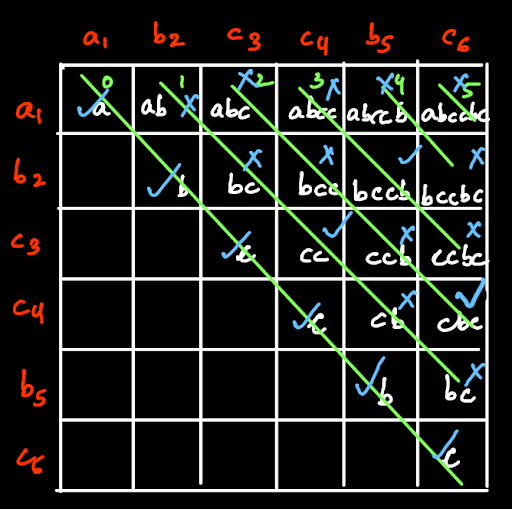 a1 b2 c3 c4 b5 c6
0 1 2 3 4 5
a1 ✓ a ab x abc x abcc x abccb x abccbc x
b2 ✓ b bc x bcc x bccb ✓ bccbc x
c3 ✓ c cc ✓ ccb x ccbc x
c4 ✓ c cb x cbc ✓
b5 ✓ b bc x
c6 ✓ c